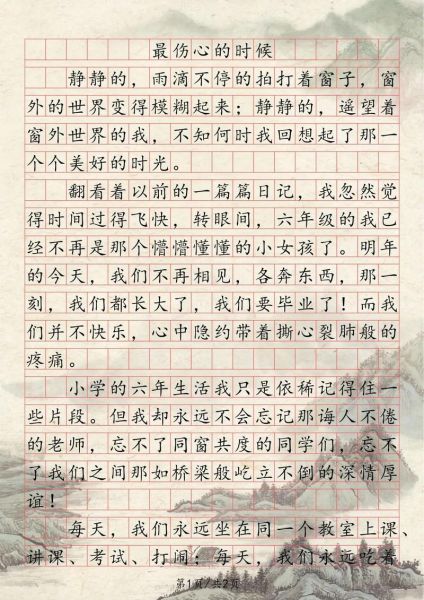 最伤心的时候
静静的，雨滴不停的拍打着窗子，窗
外的世界变得模糊起来；静静的，遥望着
窗外世界的我，不知何时我回想起了那一
个个美好的时光。
翻看着以前的一篇篇日记，我忽然觉
得时间过得飞快，转眼间，六年级的我已
经不再是那个懵懵懂懂的小女孩了。明年
的今天，我们不再相见，各奔东西，那一
刻，我们都长大了，我们要毕业了！而我
们并不快乐，心中隐约带着撕心裂肺般的
疼痛。
小学的六年生活我只是依稀记得住一
些片段。但我却永远不会忘记那诲人不倦
的老师，忘不了同窗共度的同学们，忘不
了我们之间那如桥梁般屹立不倒的深情厚
谊！
每天，我们永远坐在同一个教室上课、
讲课、考试、打闹；每天，我们永远吃着
第1頁/共2頁